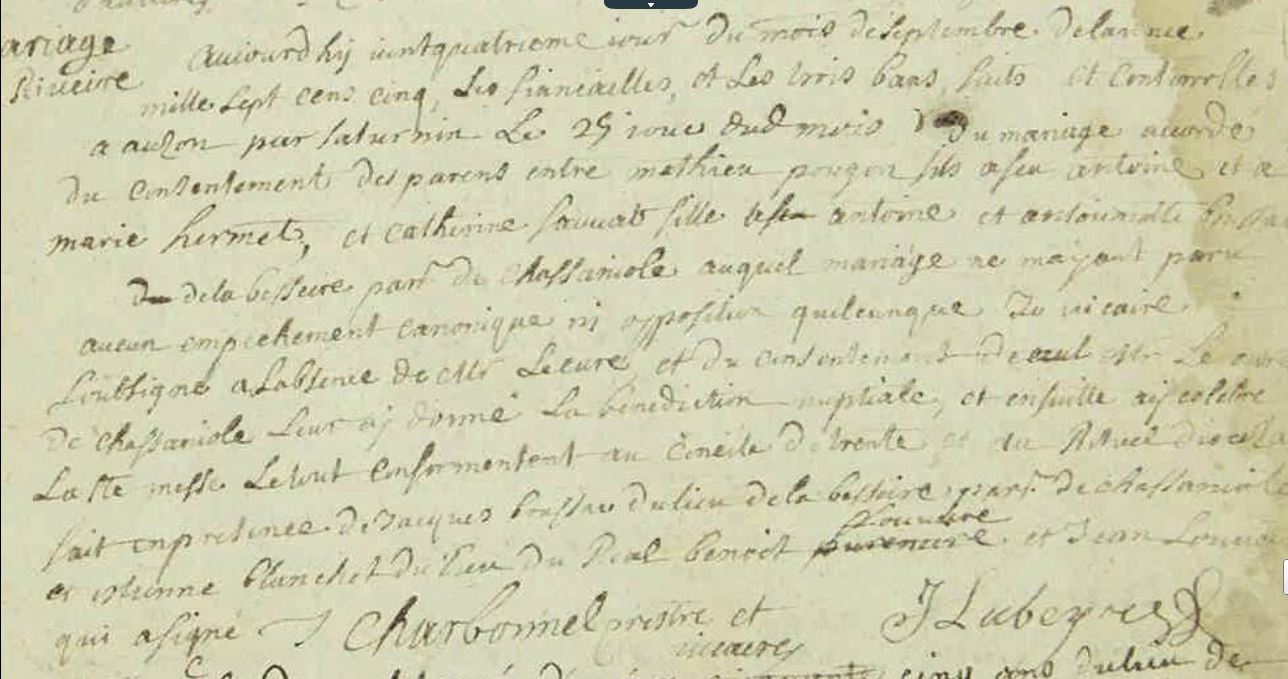 ariage
Riueire
aujourdhij uintquatrieme iour du mois de septembre delannee
mille sept cens cinq, les fiancailles, et les trois bans, faits et controlles
a auzon par saturnin Le 25 iour dud mois du mariage accordé
du consentement des parens entre mathieu pougon fils afeu antoine et a
marie hermet, et catherine sauuat fille antoine et
dela besseire parr de chassaniole auquel mariage ne mayant paru
aucun empechement canonique ni opposition quelcunque Je uicaire
soubsigné a Labsence de Mr Lecuré, et du consentement de Mr Le cure
de chassaniole Leur aij donné La benediction nuptiale, et ensuitte aij celebré
La Ste messe Le tout conformement au concile de trente et au Rituel
fait en presence de Jacques dulieu dela besseire parr de chassaniole
et estienne blanchet du lieu du Pical benoit et Jean
qui a signé J Charbonnel prestre et
uicaire
J Lubeyre
cinq ans dulieu de